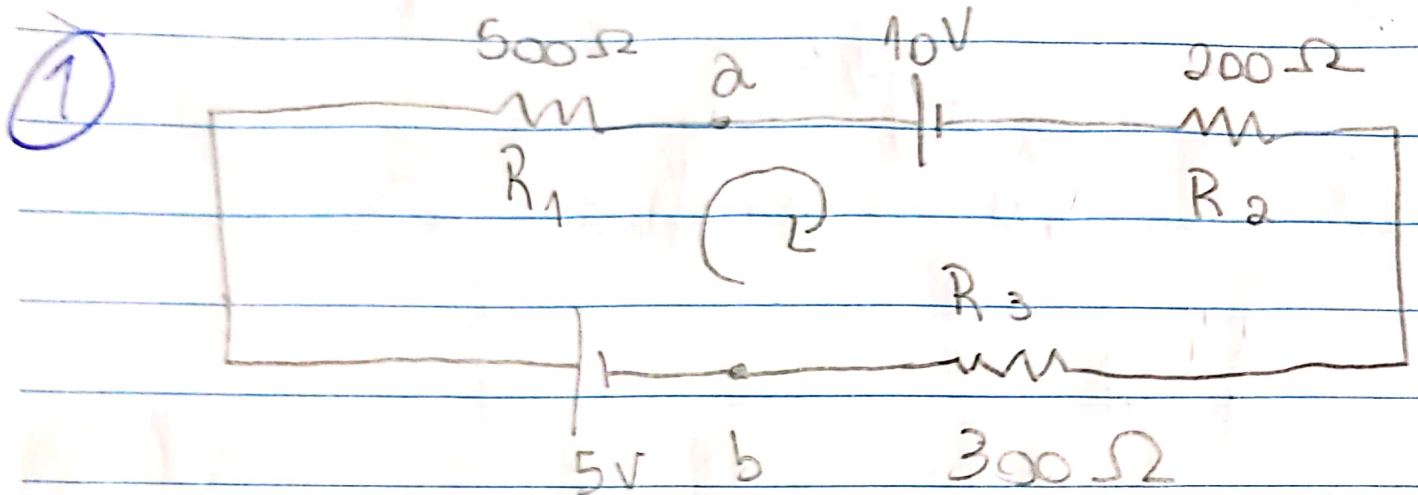 1
500Ω a 10V 200Ω
R1 R2
R3
5V b 300Ω